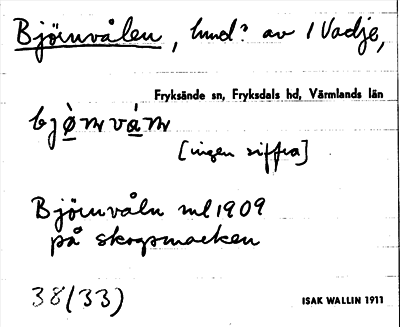 Björnvålen, hmd? av 1 Vadje,
Fryksände sn, Fryksdals hd, Värmlands län
[ingen siffra]
Björnvåln ml 1909
på skogsmarken
38(33)
ISAK WALLIN 1911